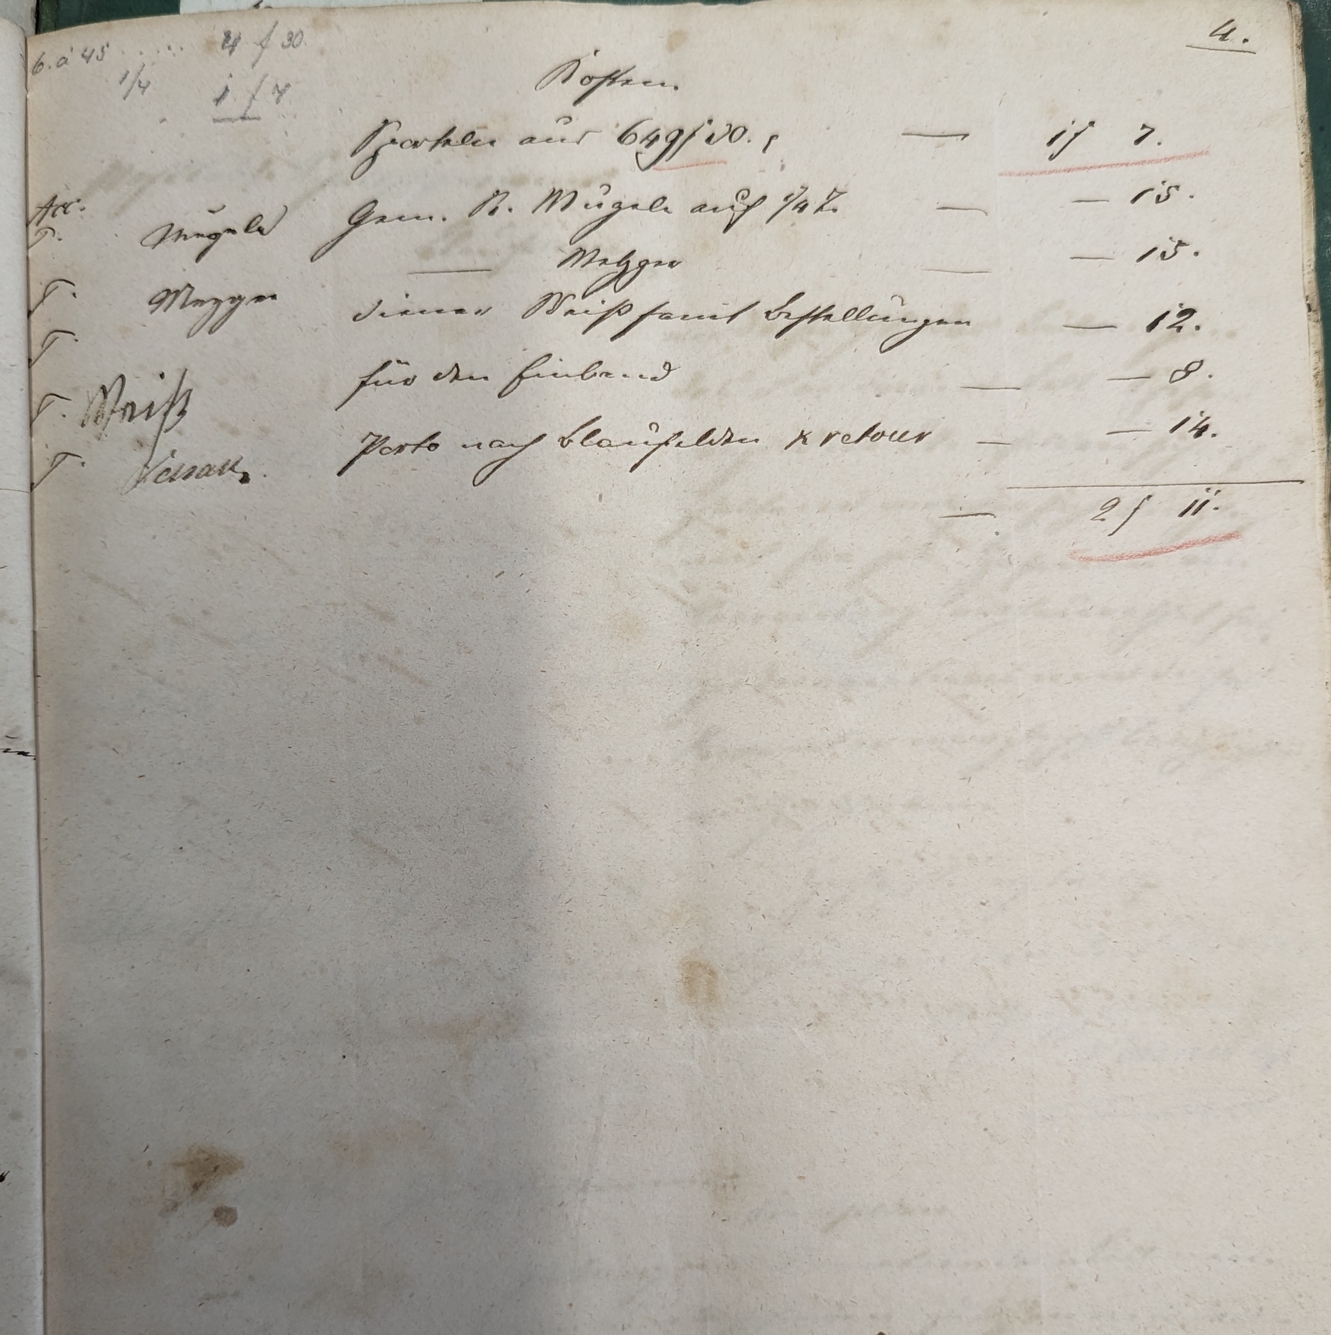 4.
6. à 45 ..... 4 f 30
1/4 1 f 7
Kosten
Sporteln aus 649 f 30. — 1 f 7.
Acc.
T. Mugele Gem. R. Mugele auf 1/4 T. — — 15.
T. Mezger — Metzger — — 15.
T. diener Weiß samt Bestellungen — 12.
T. Weiß für den Einband — — 8.
T. Porto nach Blaufelden & retour — — 14.
— 2 f 11.